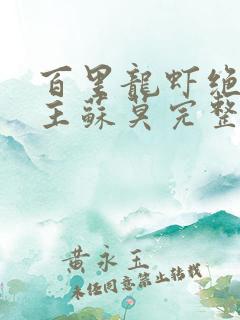 百里龍虾绝
王蘇莫完整
黄永玉
未经同意禁止转载